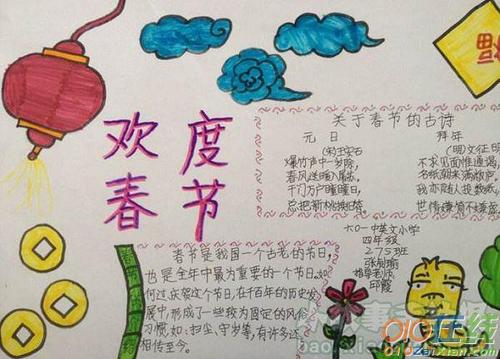 欢度
春节
福
关于春节的古诗
元日
(宋)王安石
爆竹声中一岁除,
春风送暖入屠苏。
千门万户曈曈日,
总把新桃换旧符
拜年
(明)文征明
不求见面惟通谒,
名纸朝来满敝庐。
我亦随人投数纸,
世情嫌简不嫌虚
六〇一中英文小学
四年级
275班
指导老师
邱霞
春节是我国一个古老的节日,
也是全年中最为重要的一个节日,如
何过庆贺这个节日,在千百年的历史发
展中,形成了一些较为固定的风俗
习惯,如:扫尘、守岁等,有许多还
相传至今。
010在线